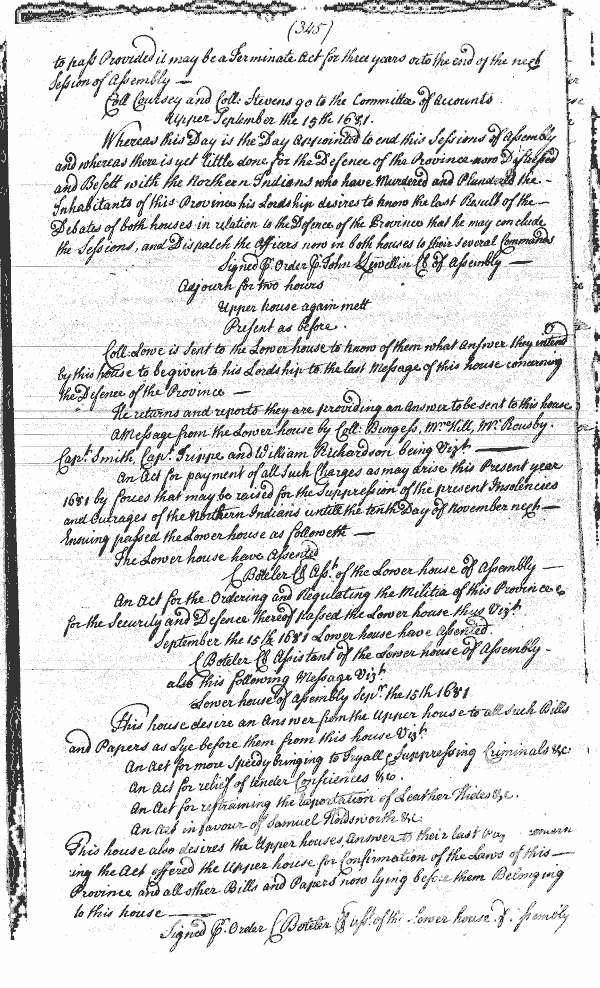 (345)
to pass Provided it may be a Terminate Act for three years or to the end of the next
Session of Assembly —
Coll Coursey and Coll: Stevens go to the Committee of Accounts
Upper September the 15th 1681.
Whereas this Day is the Day appointed to end this Sessions of Assembly
and whereas there is yet little done for the Defence of the Province now Distressed
and Besett with the Northern Indians who have Murdered and Plundered the -
Inhabitants of this Province his Lordship desires to know the last Result of the -
Debates of both houses in relation to the Defence of the Province that he may conclude
the Sessions, and Dispatch the Officers now in both houses to their several Commands
Signed P. Order P John Llewellin Cl of Assembly —
Adjourn for two hours
Upper house again mett
Present as before.
Coll: Lowe is sent to the Lower house to know of them what Answer they intend
by this house to be given to his Lordship to the last Message of this house concerning
the Defence of the Province —
He returns and reports they are providing an Answer to be sent to this house
A Message from the Lower house by Coll: Burgess, Mr Hill, Mr. Rousby.
Capt. Smith, Capt. Trippe and William Richardson being Vizt. —
An Act for payment of all Such Charges as may arise this Present year
1681 by forces that may be raised for the Suppression of the present Insolencies
and Outrages of the Northern Indians untill the tenth Day of November next —
Ensuing passed the Lower house as followeth —
The Lower house have Assented
C Boteler Cl Asst. of the Lower house of Assembly —
An Act for the Ordering and Regulating the Militia of this Province &
for the Security and Defence thereof passed the Lower house thus Vizt.
September the 15th 1681 Lower house have assented.
C Boteler Cl Assistant of the Lower house of Assembly -
also this following Message Vizt.
Lower house of Assembly Sepr. the 15th 1681
This house desire an Answer from the Upper house to all Such Bills
and Papers as Lye before them from this house Vizt.
An Act for more Speedy bringing to Tryall & Suppressing Criminals &c
An Act for relief of tender Consciences &c.
An Act for restraining the Exportation of Leather Hides &c.
An Act in favour of Samuel Holdsworth &c
This house also desires the Upper houses Answer to their last concern
ing the Act offered the Upper house for Confirmation of the Laws of this —
Province and all other Bills and Papers now lying before them Belonging
to this house —
Signed P. Order C Boteler Cl asst. of the Lower house of Assembly